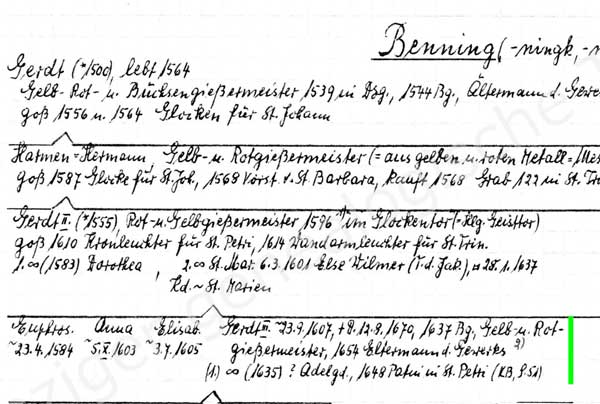 Benning (, -ningk, -n
Gerdt (*1500), lebt 1564
Gelb- Rot- u. Büchsengießermeister 1539 in Dzg., 1544 Bg., Ältermann d. Gewer
goß 1556 u. 1564 Glocken für St. Johann
Harmen = Hermann, Gelb- u. Rotgießermeister (= aus gelben u. roten Metall = Mes
goß 1587 Glocke für St. Joh., 1568 Vorst. v. St Barbara, kauft 1568 Grab 122 in St. Tri
Gerdt II. (*1555), Rot- u. Gelbgießermeister 1596 1) im Glockentor (= Hlg. Geisttor)
goß 1610 Kronleuchter für St. Petri, 1614 Wandarmleuchter für St. Trin.
1. ∞ (1583) Dorothea , 2. ∞ St. Mar. 6.3.1601 Else Wilmer (T. d. Jak.), 28.1.1637
Kd. ~ St. Marien
Euphros. Anna Elisab. Gerdt III. ~ 23.9.1607, 12.8.1670, 1637 Bg., Gelb- u. Rot-
~ 23.4.1584 ~ 5.X.1603 ~ 3.7.1605 gießermeister, 1654 Eltermann d. Gewerks 2)
(1.) ∞ (1635) ? Adelgd., 1648 Patin in St. Petri (KB,